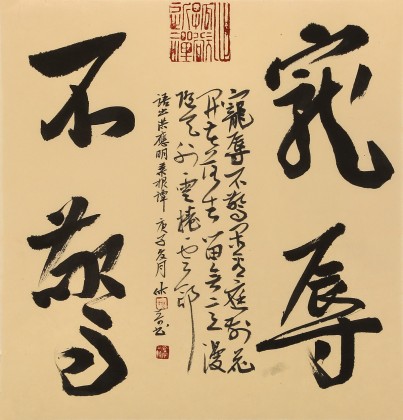 寵辱
不驚
寵辱不驚閑看庭前花
開花落去留無意漫
隨天外雲捲雲舒
語出洪應明菜根譚 庚子 月 書